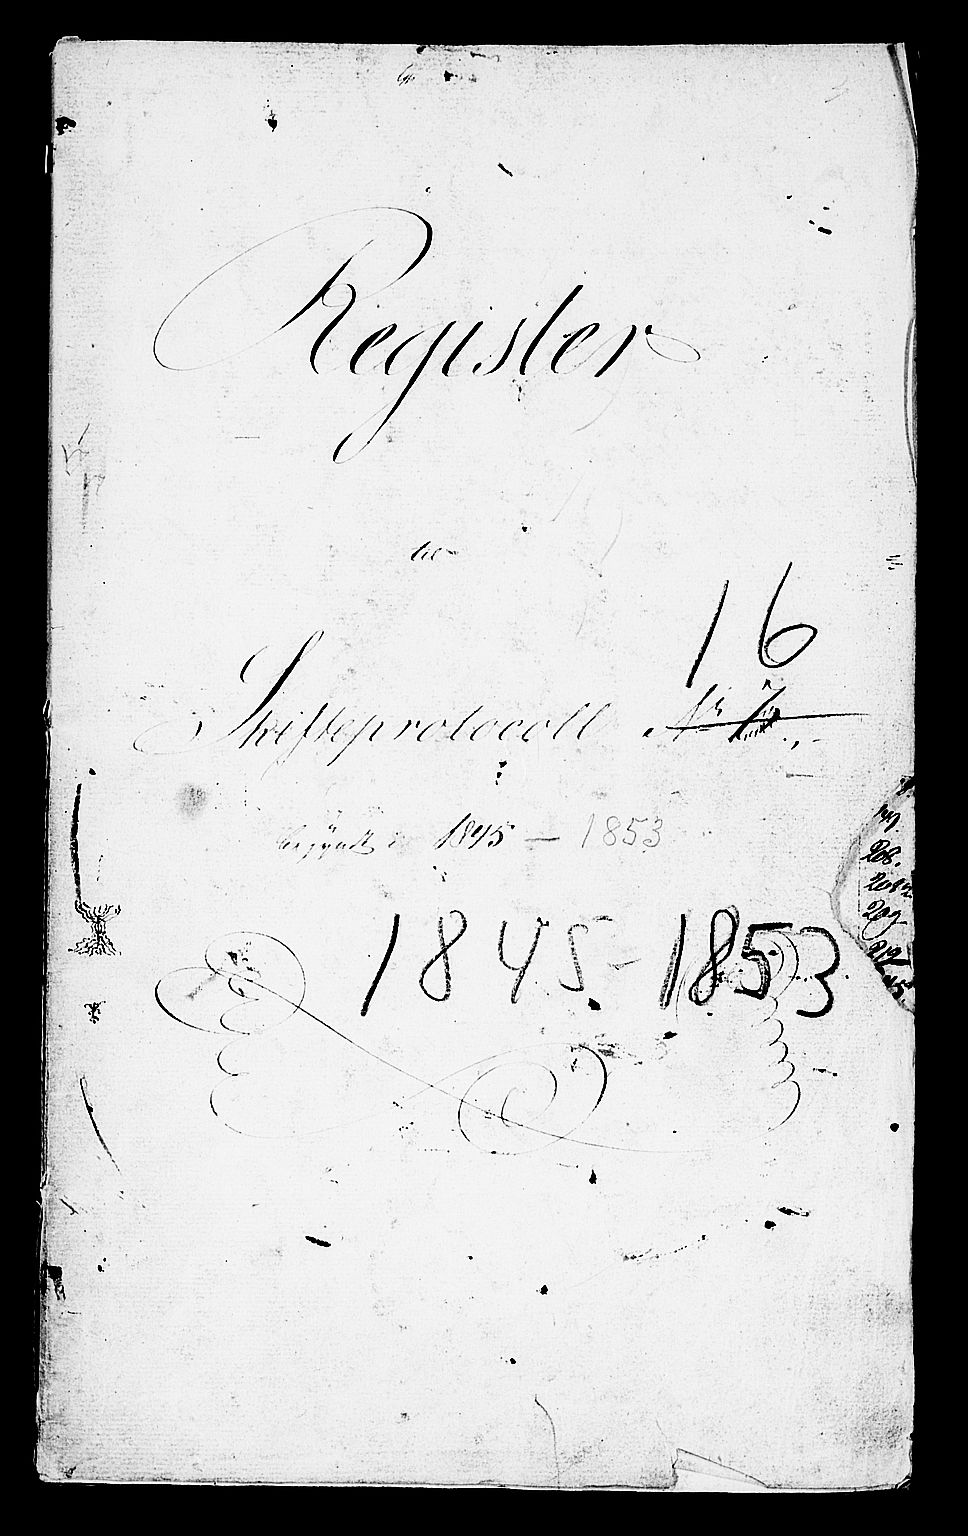 Register
til
16
Skifteprotocoll No 7
begyndt 1845 — 1853
1845-1853
208.
209